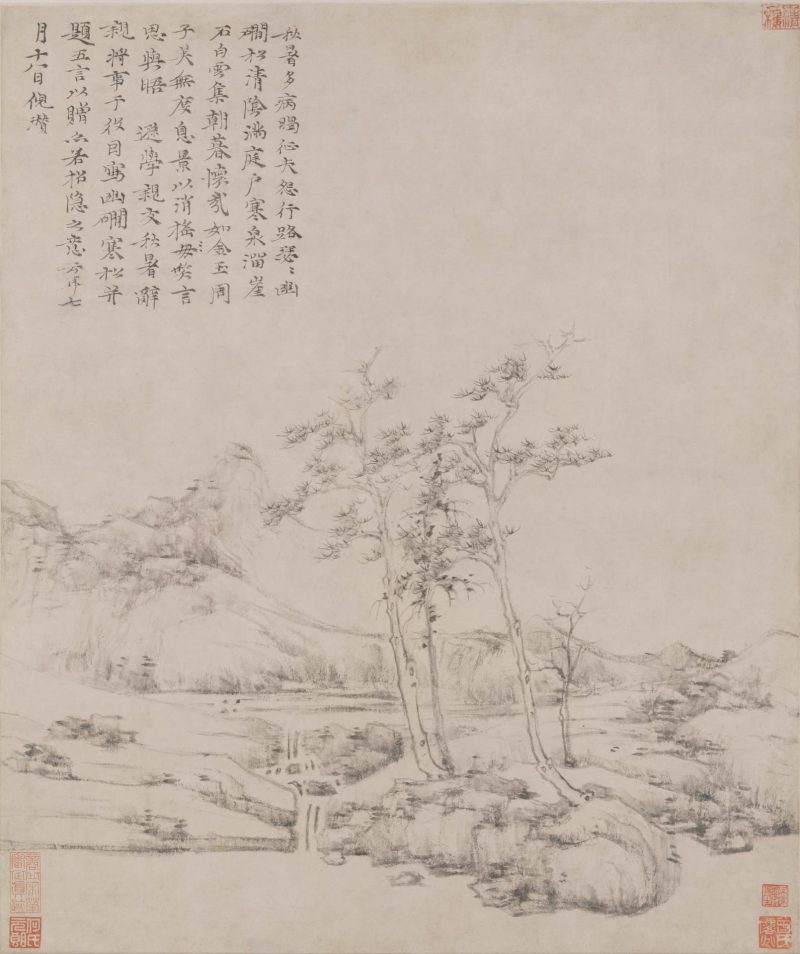 秋暑多病暍征夫怨行路瑟〻幽
磵松清陰滿庭戶寒泉溜崖
石白雲集朝暮懷哉如金玉周
子美無度息景以消搖毋笑言
思與晤 遜學親友秋暑辭
親將事于役因寫幽磵寒松并
題五言以贈亦若招隱之意云耳七
月十八日倪瓚
何氏元朗